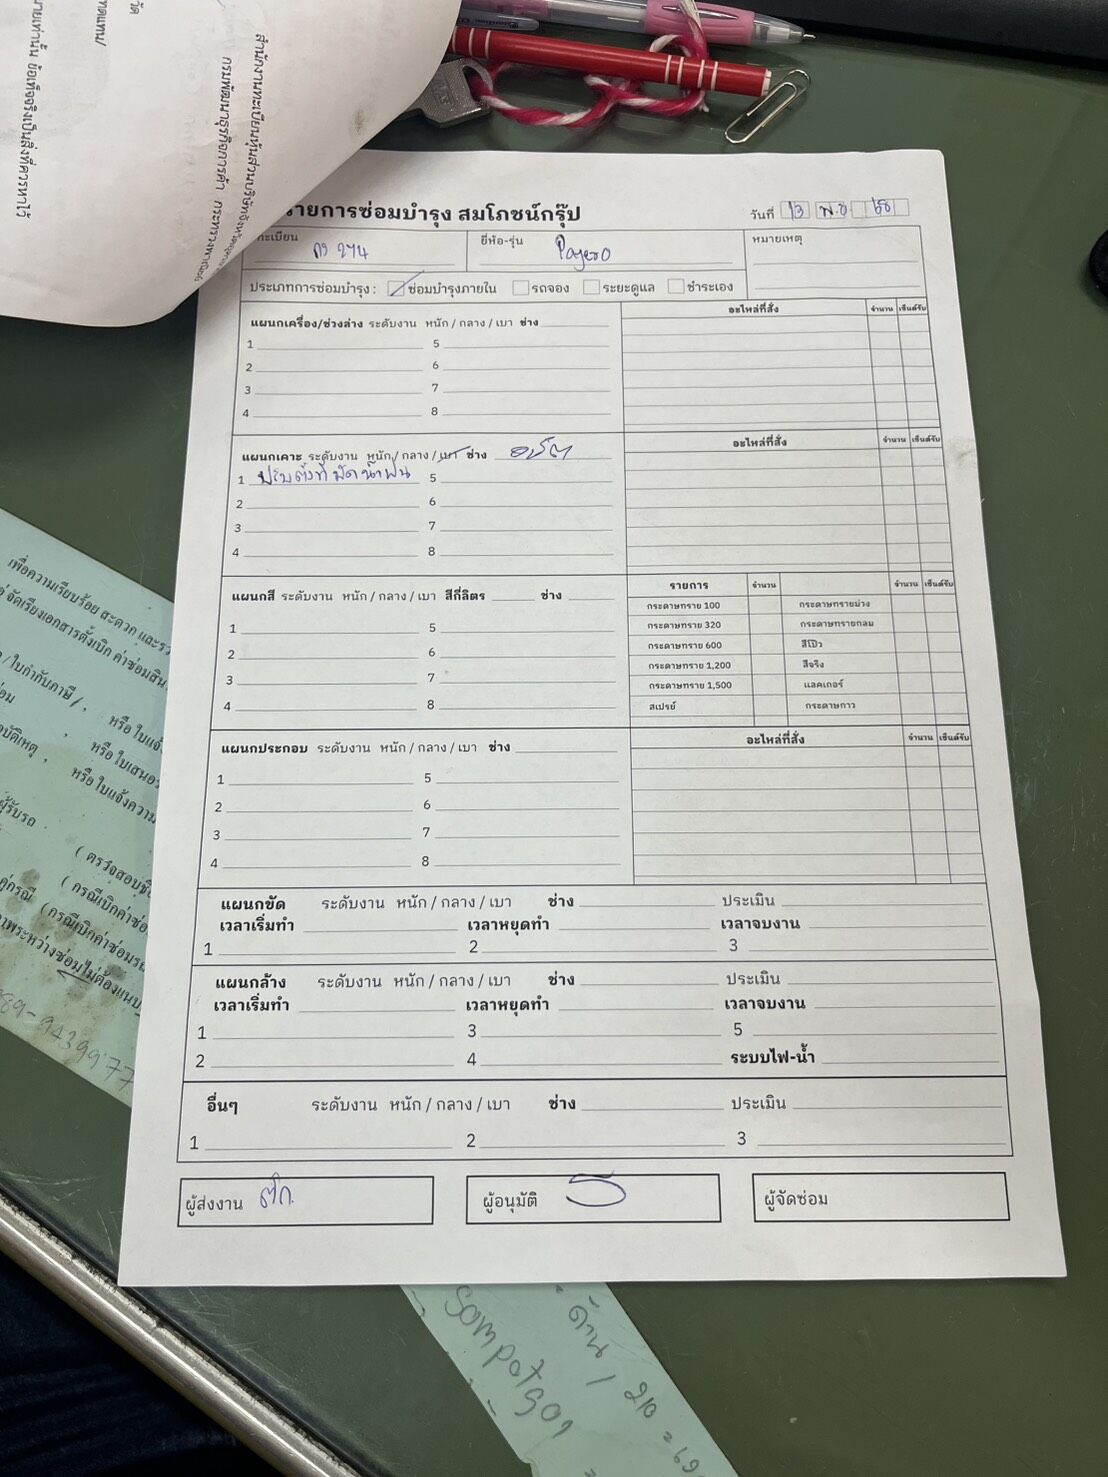 สำนักงานทะเบียนหุ้นส่วนบริษัทจังหวัด
กรมพัฒนาธุรกิจการค้า กระทรวงพาณิชย์
ข้อเท็จจริงเป็นสิ่งที่ควรหาไว้
รายการซ่อมบำรุง สมโภชน์กรุ๊ป
วันที่ 13 พ.ย 68
ทะเบียน ยี่ห้อ-รุ่น Pajero หมายเหตุ
ประเภทการซ่อมบำรุง : ซ่อมบำรุงภายใน รถจอง ระยะดูแล ชำระเอง
แผนกเครื่อง/ช่วงล่าง ระดับงาน หนัก / กลาง / เบา ช่าง อะไหล่ที่สั่ง จำนวน เซ็นต์รับ
1 5
2 6
3 7
4 8
แผนกเคาะ ระดับงาน หนัก / กลาง / เบา ช่าง อะไหล่ที่สั่ง จำนวน เซ็นต์รับ
1 ปรับตั้งที่ปัดน้ำฝน 5
2 6
3 7
4 8
แผนกสี ระดับงาน หนัก / กลาง / เบา สีกี่ลิตร ช่าง รายการ จำนวน จำนวน เซ็นต์รับ
กระดาษทราย 100 กระดาษทรายม่วง
1 5 กระดาษทราย 320 กระดาษทรายกลม
2 6 กระดาษทราย 600 สีโป๊ว
3 7 กระดาษทราย 1,200 สีจริง
4 8 กระดาษทราย 1,500 แลคเกอร์
สเปรย์ กระดาษกาว
แผนกประกอบ ระดับงาน หนัก / กลาง / เบา ช่าง อะไหล่ที่สั่ง จำนวน เซ็นต์รับ
1 5
2 6
3 7
4 8
แผนกขัด ระดับงาน หนัก / กลาง / เบา ช่าง ประเมิน
เวลาเริ่มทำ เวลาหยุดทำ เวลาจบงาน
1 2 3
แผนกล้าง ระดับงาน หนัก / กลาง / เบา ช่าง ประเมิน
เวลาเริ่มทำ เวลาหยุดทำ เวลาจบงาน
1 3 5
2 4 ระบบไฟ-น้ำ
อื่นๆ ระดับงาน หนัก / กลาง / เบา ช่าง ประเมิน
1 2 3
ผู้ส่งงาน ผู้อนุมัติ ผู้จัดซ่อม
เพื่อความเรียบร้อย สะดวก และ
จัดเรียงเอกสารตั้งเบิก ค่าซ่อมสิน
/ใบกำกับภาษี / , หรือ ใบแจ้
ซ่อม , หรือ ใบเสนอ
บัติเหตุ , หรือ ใบแจ้งความ
ผู้รับรถ
( ตรวจสอบชื่
คู่กรณี ( กรณีเบิกค่าซ่อ
(กรณีเบิกค่าซ่อมรถ
าพระหว่างซ่อมไม่ต้องแนบ
089-9439977